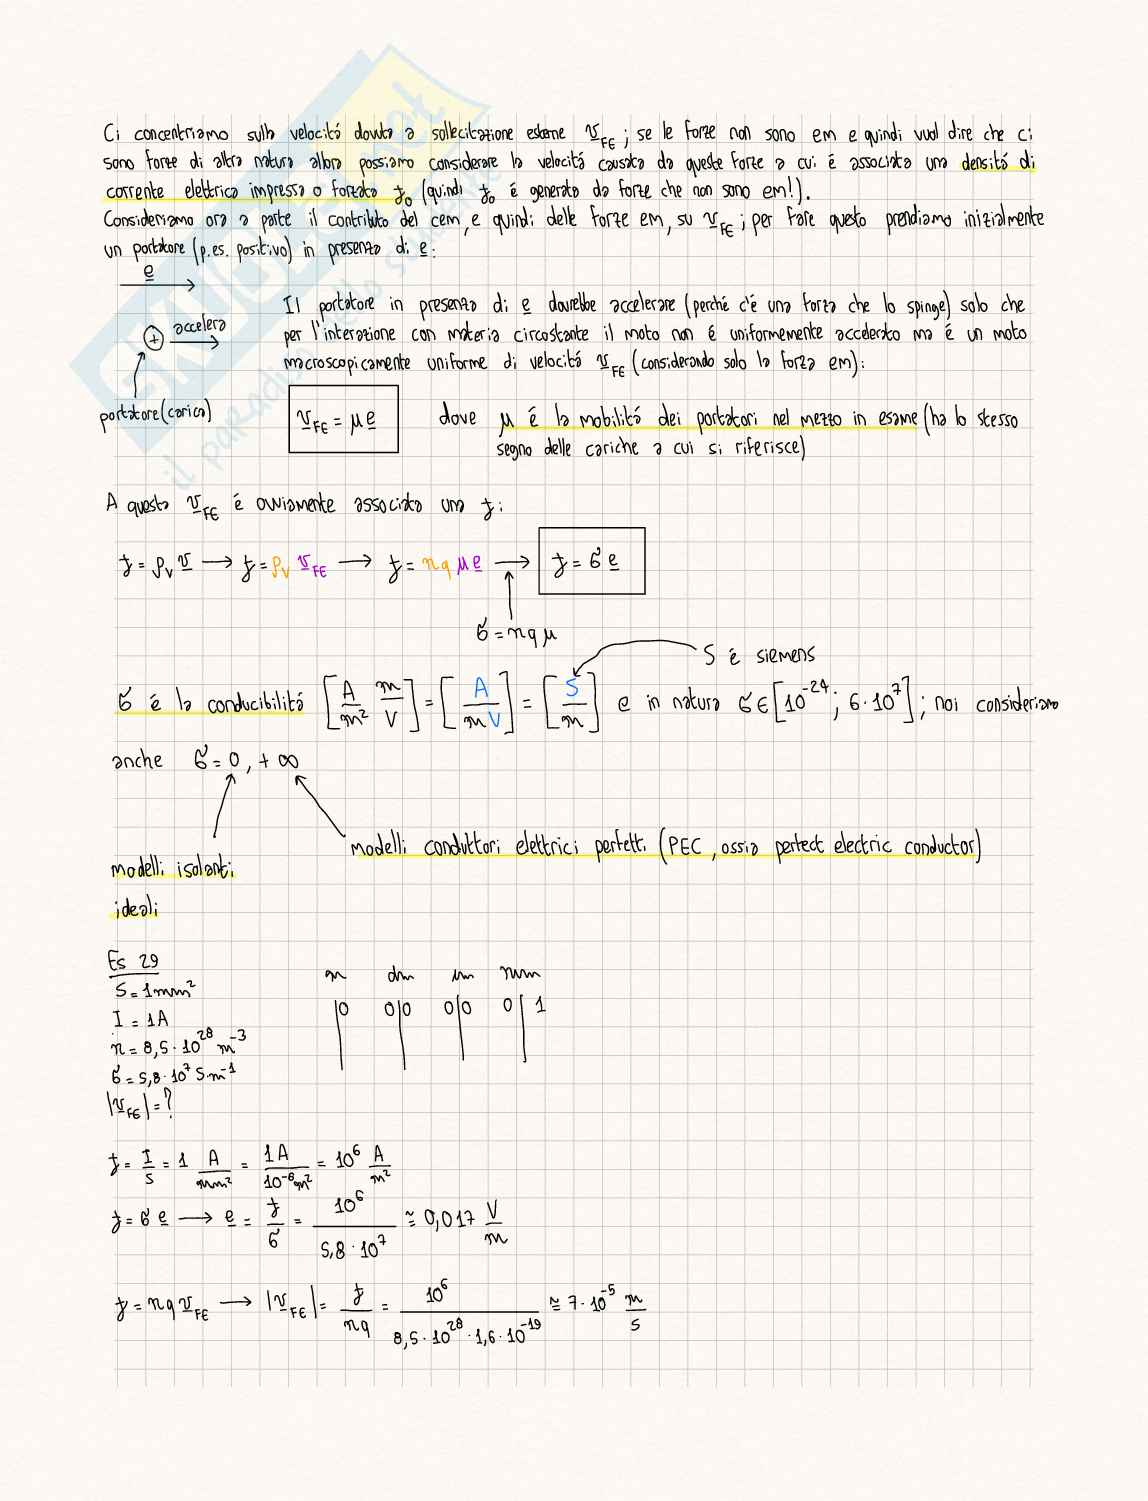 Ci concentriamo sulla velocità dovuta a sollecitazione esterne v_FE ; se le forze non sono em e quindi vuol dire che ci
sono forze di altra natura allora possiamo considerare la velocità causata da queste forze a cui è associata una densità di
corrente elettrica impressa o forzata J₀ (quindi J₀ è generata da forze che non sono em!).
Consideriamo ora a parte il contributo del cem, e quindi delle forze em, su v_FE ; per fare questo prendiamo inizialmente
un portatore (p.es. positivo) in presenza di e:
e
accelera
+
portatore (carica)
Il portatore in presenza di e dovrebbe accelerare (perché c'è una forza che lo spinge) solo che
per l'interazione con materia circostante il moto non è uniformemente accelerato ma è un moto
macroscopicamente uniforme di velocità v_FE (considerando solo la forza em):
v_FE = μe dove μ è la mobilità dei portatori nel mezzo in esame (ha lo stesso
segno delle cariche a cui si riferisce)
A questa v_FE è ovviamente associata una J:
J = ρ_V v → J = ρ_V v_FE → J = nq μe → J = σ e
σ = nqμ
S è siemens
σ è la conducibilità [A/m² m/V] = [A/mV] = [S/m] e in natura σ∈[10⁻²⁴; 6·10⁷]; noi consideriamo
anche σ = 0, +∞
modelli conduttori elettrici perfetti (PEC, ossia perfect electric conductor)
modelli isolanti
ideali
Es 29
S = 1mm²
I = 1A
n = 8,5·10²⁸ m⁻³
σ = 5,8·10⁷ S·m⁻¹
|v_FE| = ?
m dm cm mm
|0 0|0 0|0 0|1
J = I/S = 1 A/mm² = 1A/10⁻⁶m² = 10⁶ A/m²
J = σ e → e = J/σ = 10⁶/5,8·10⁷ ≅ 0,017 V/m
J = nq v_FE → |v_FE| = J/nq = 10⁶/8,5·10²⁸·1,6·10⁻¹⁹ ≅ 7·10⁻⁵ m/s
SKUOLA.net
il paradiso dello studente